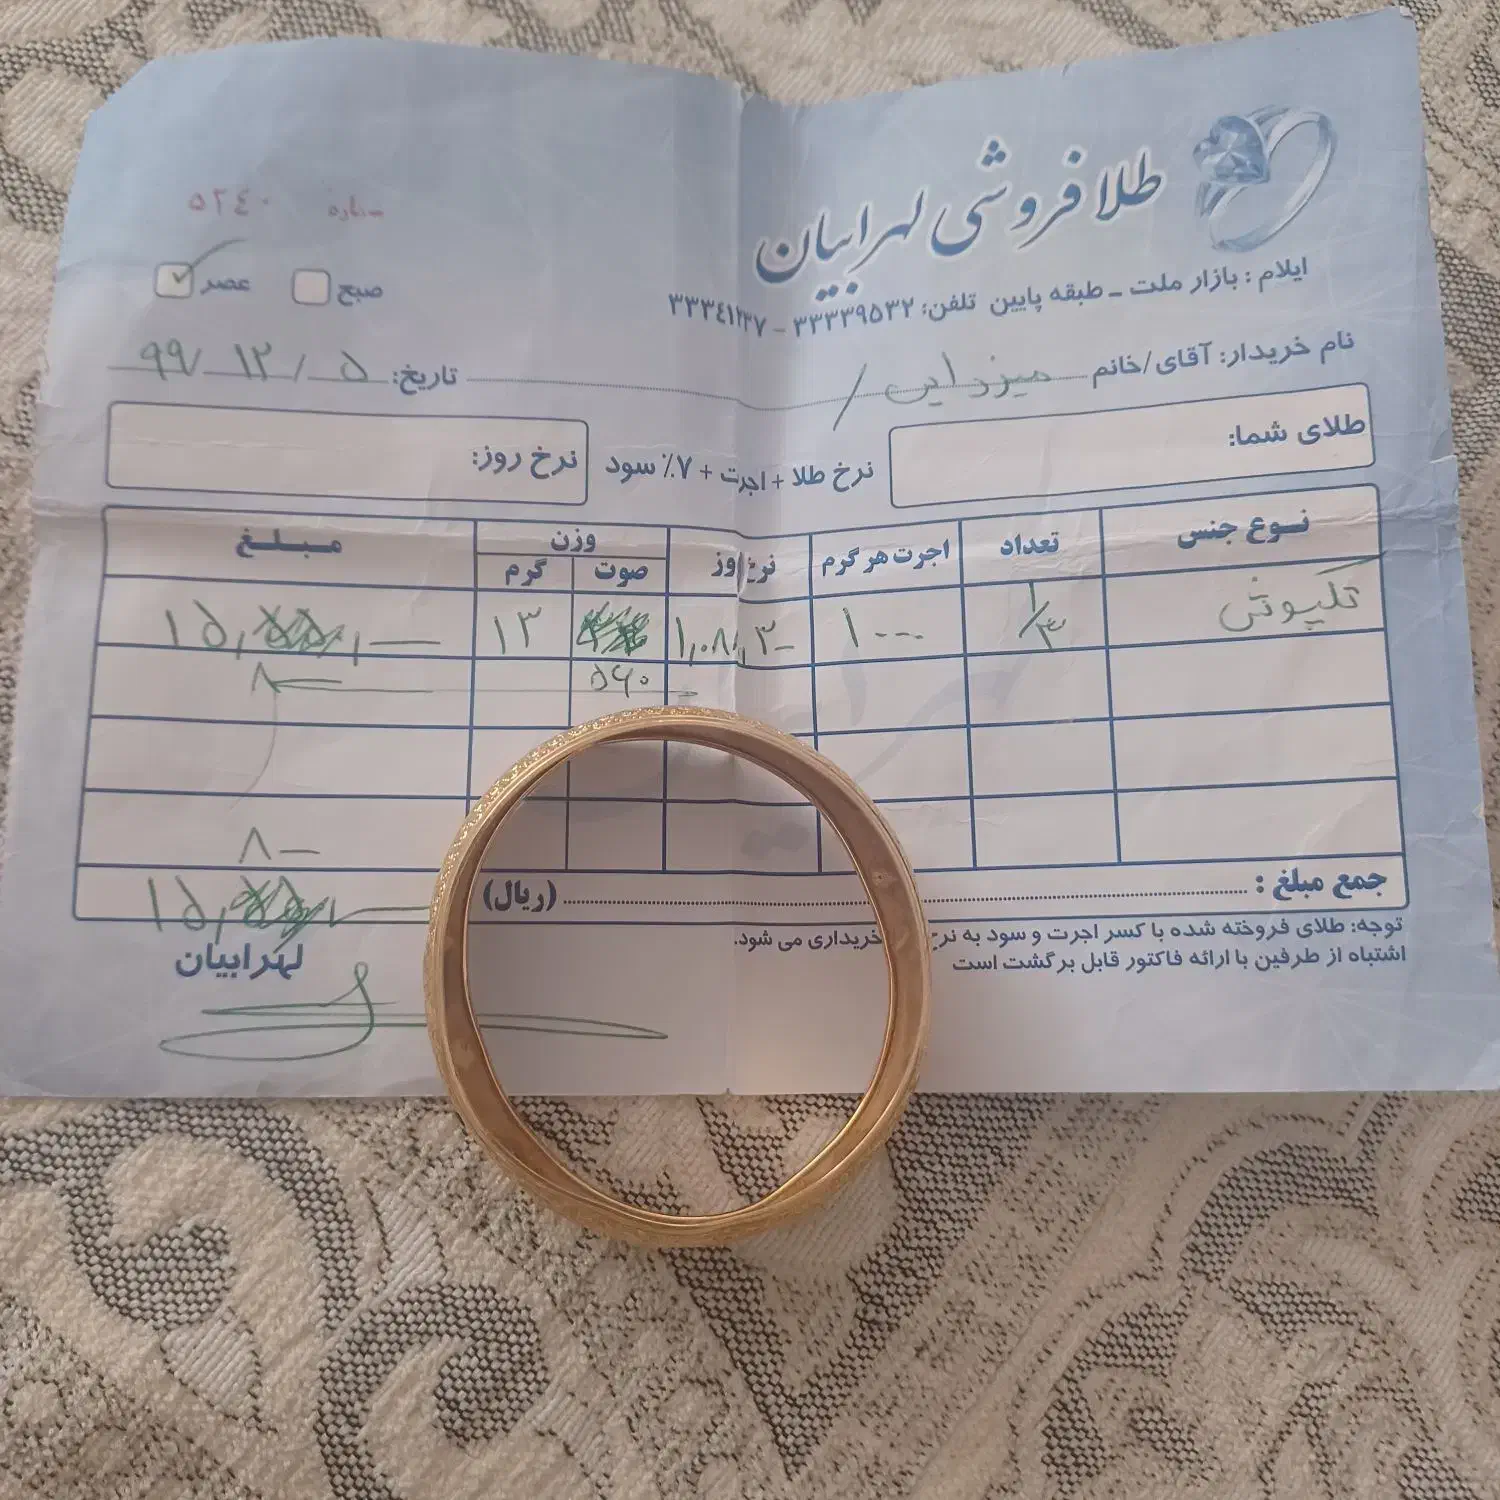 طلافروشی لهرابیان
شماره ۵۲۴۰
صبح عصر
ایلام : بازار ملت ـ طبقه پایین تلفن: ۳۳۳۳۹۵۳۲ – ۳۳۳۴۱۲۳۷
نام خریدار: آقای/خانم میرزایی تاریخ: ۹۹/۱۲/۵
طلای شما:
نرخ طلا + اجرت + ۷٪ سود
نرخ روز:
نوع جنس تعداد اجرت هر گرم نرخ روز وزن مبلغ
صوت گرم
تکپوش ۱/۳ ۱۰۰۰۰ ۱,۰۸۱,۳۰ ۱۳
۵۶۰ ۸
۸۰
جمع مبلغ : (ریال)
توجه: طلای فروخته شده با کسر اجرت و سود به نرخ خریداری می شود.
اشتباه از طرفین با ارائه فاکتور قابل برگشت است
لهرابیان